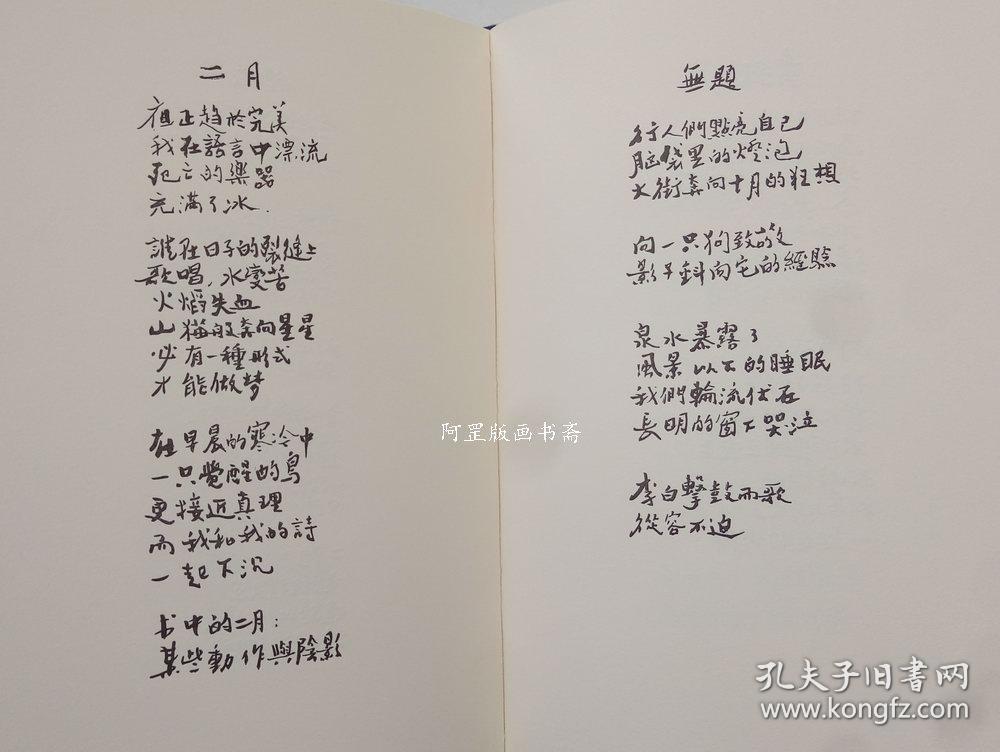 二月
夜正趨於完美
我在語言中漂流
死亡的樂器
充滿了冰
誰在日子的裂縫上
歌唱，水變苦
火焰失血
山猫般奔向星星
必有一種形式
才能做梦
在早晨的寒冷中
一只覺醒的鳥
更接近真理
而我和我的詩
一起下沉
书中的二月：
某些動作與陰影
無題
行人們點亮自己
脑袋里的燈泡
大街奔向十月的狂想
向一只狗致敬
影子斜向它的經驗
泉水暴露了
風景以下的睡眠
我們輪流伏在
長明的窗下哭泣
李白擊鼓而歌
從容不迫
阿罡版画书斋
孔夫子旧书网
www.kongfz.com